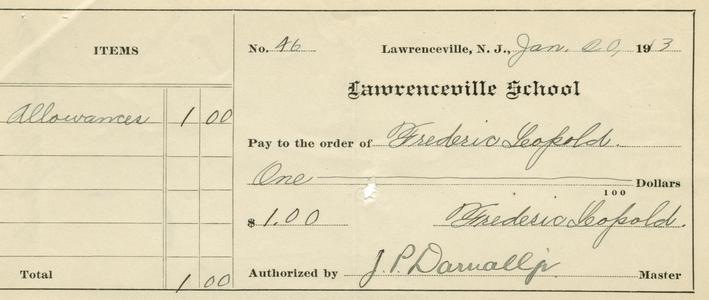 ITEMS
Allowances 1 00
Total 1 00
No. 46 Lawrenceville, N. J., Jan. 20, 1913
Lawrenceville School
Pay to the order of Frederic Leopold.
One 100 Dollars
$ 1.00 Frederic Leopold.
Authorized by J. P. Darnall Jr Master